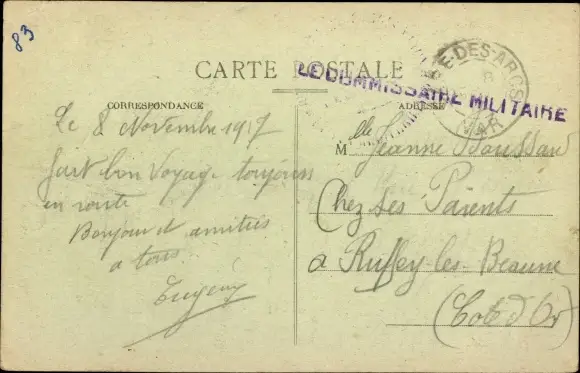 83
CARTE POSTALE
LE COMMISSAIRE MILITAIRE
E-DES-ARCS
VAR
CORRESPONDANCE
ADRESSE
Le 8 Novembre 1917
Fait bon Voyage toujours
en route
Bonjour et amitiés
a tous
Eugène
Mlle Jeanne
Chez ses Parents
a Ruffey-les-Beaune
(Cote d'Or)